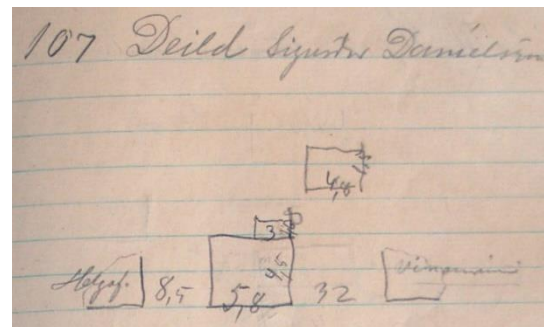 107 Deild Sigurður Daníelsson
4,8
3
Helgaf. 8,5 5,8 32